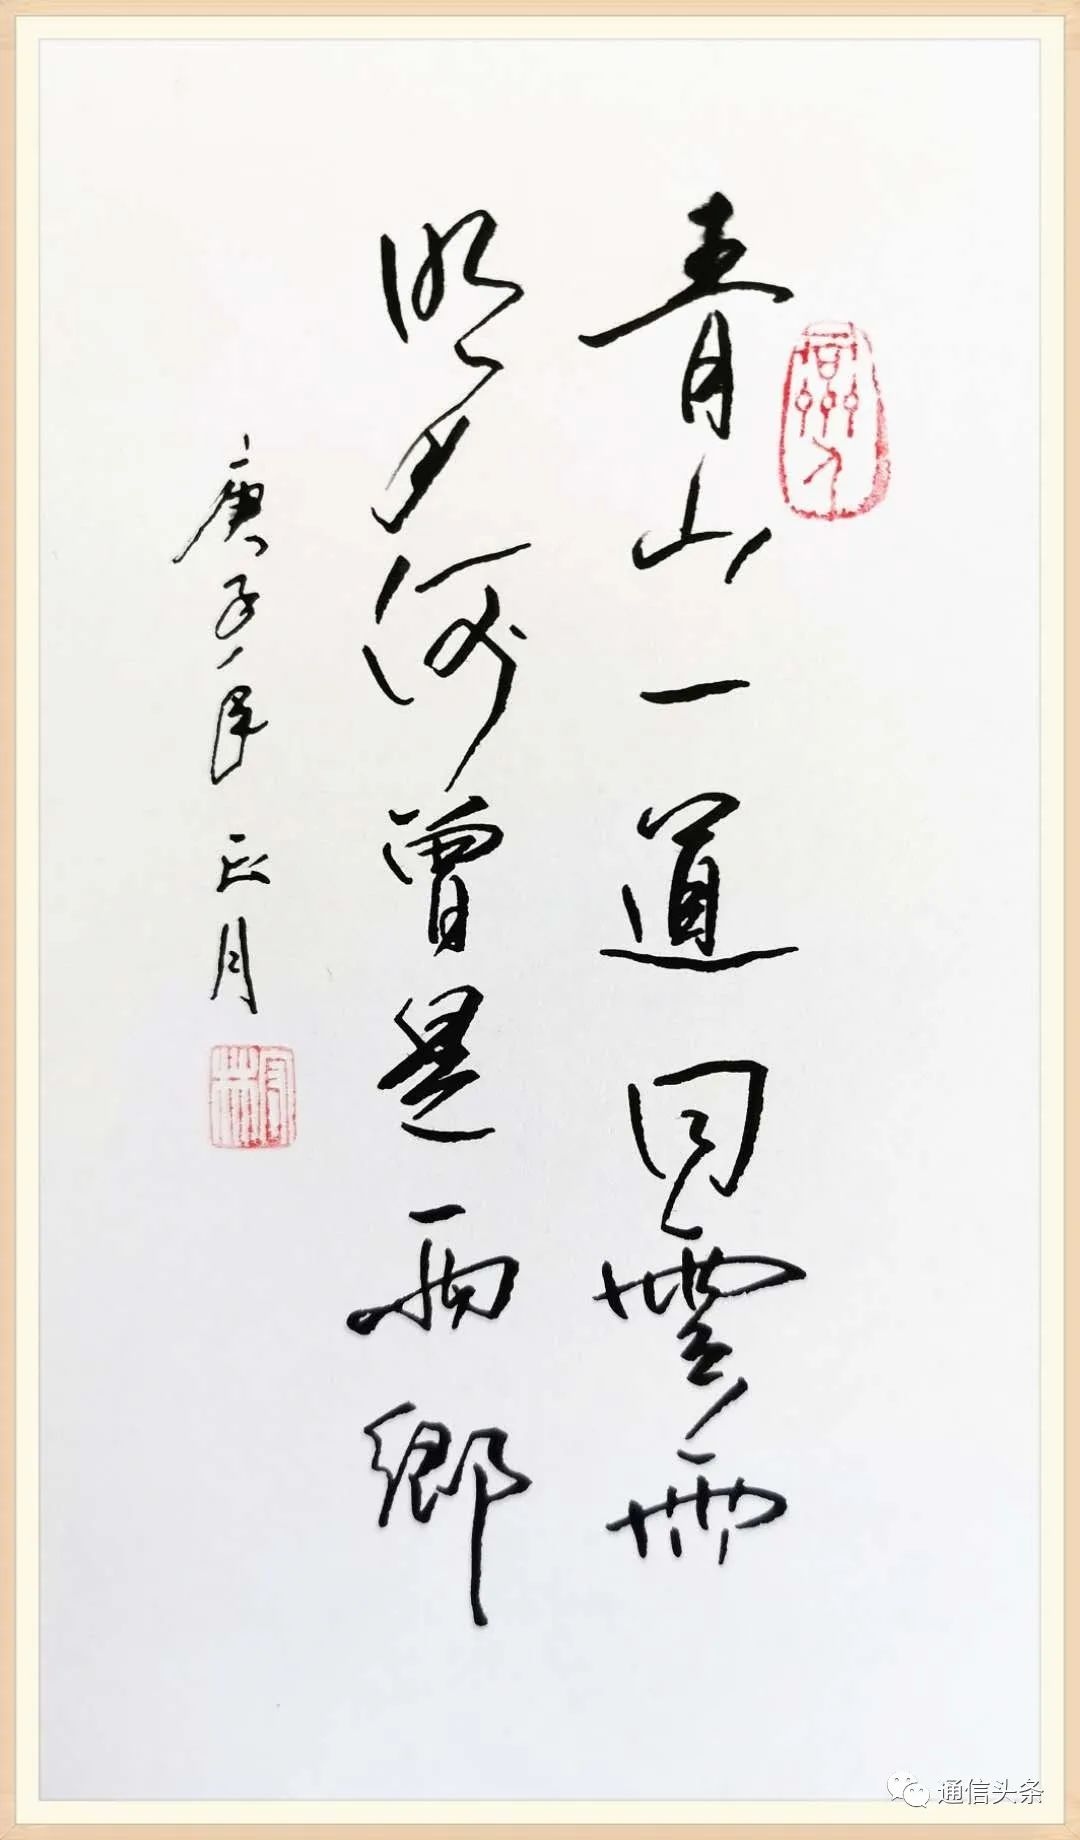 青山一道同雲雨
明月何曾是兩鄉
庚子年正月
通信头条